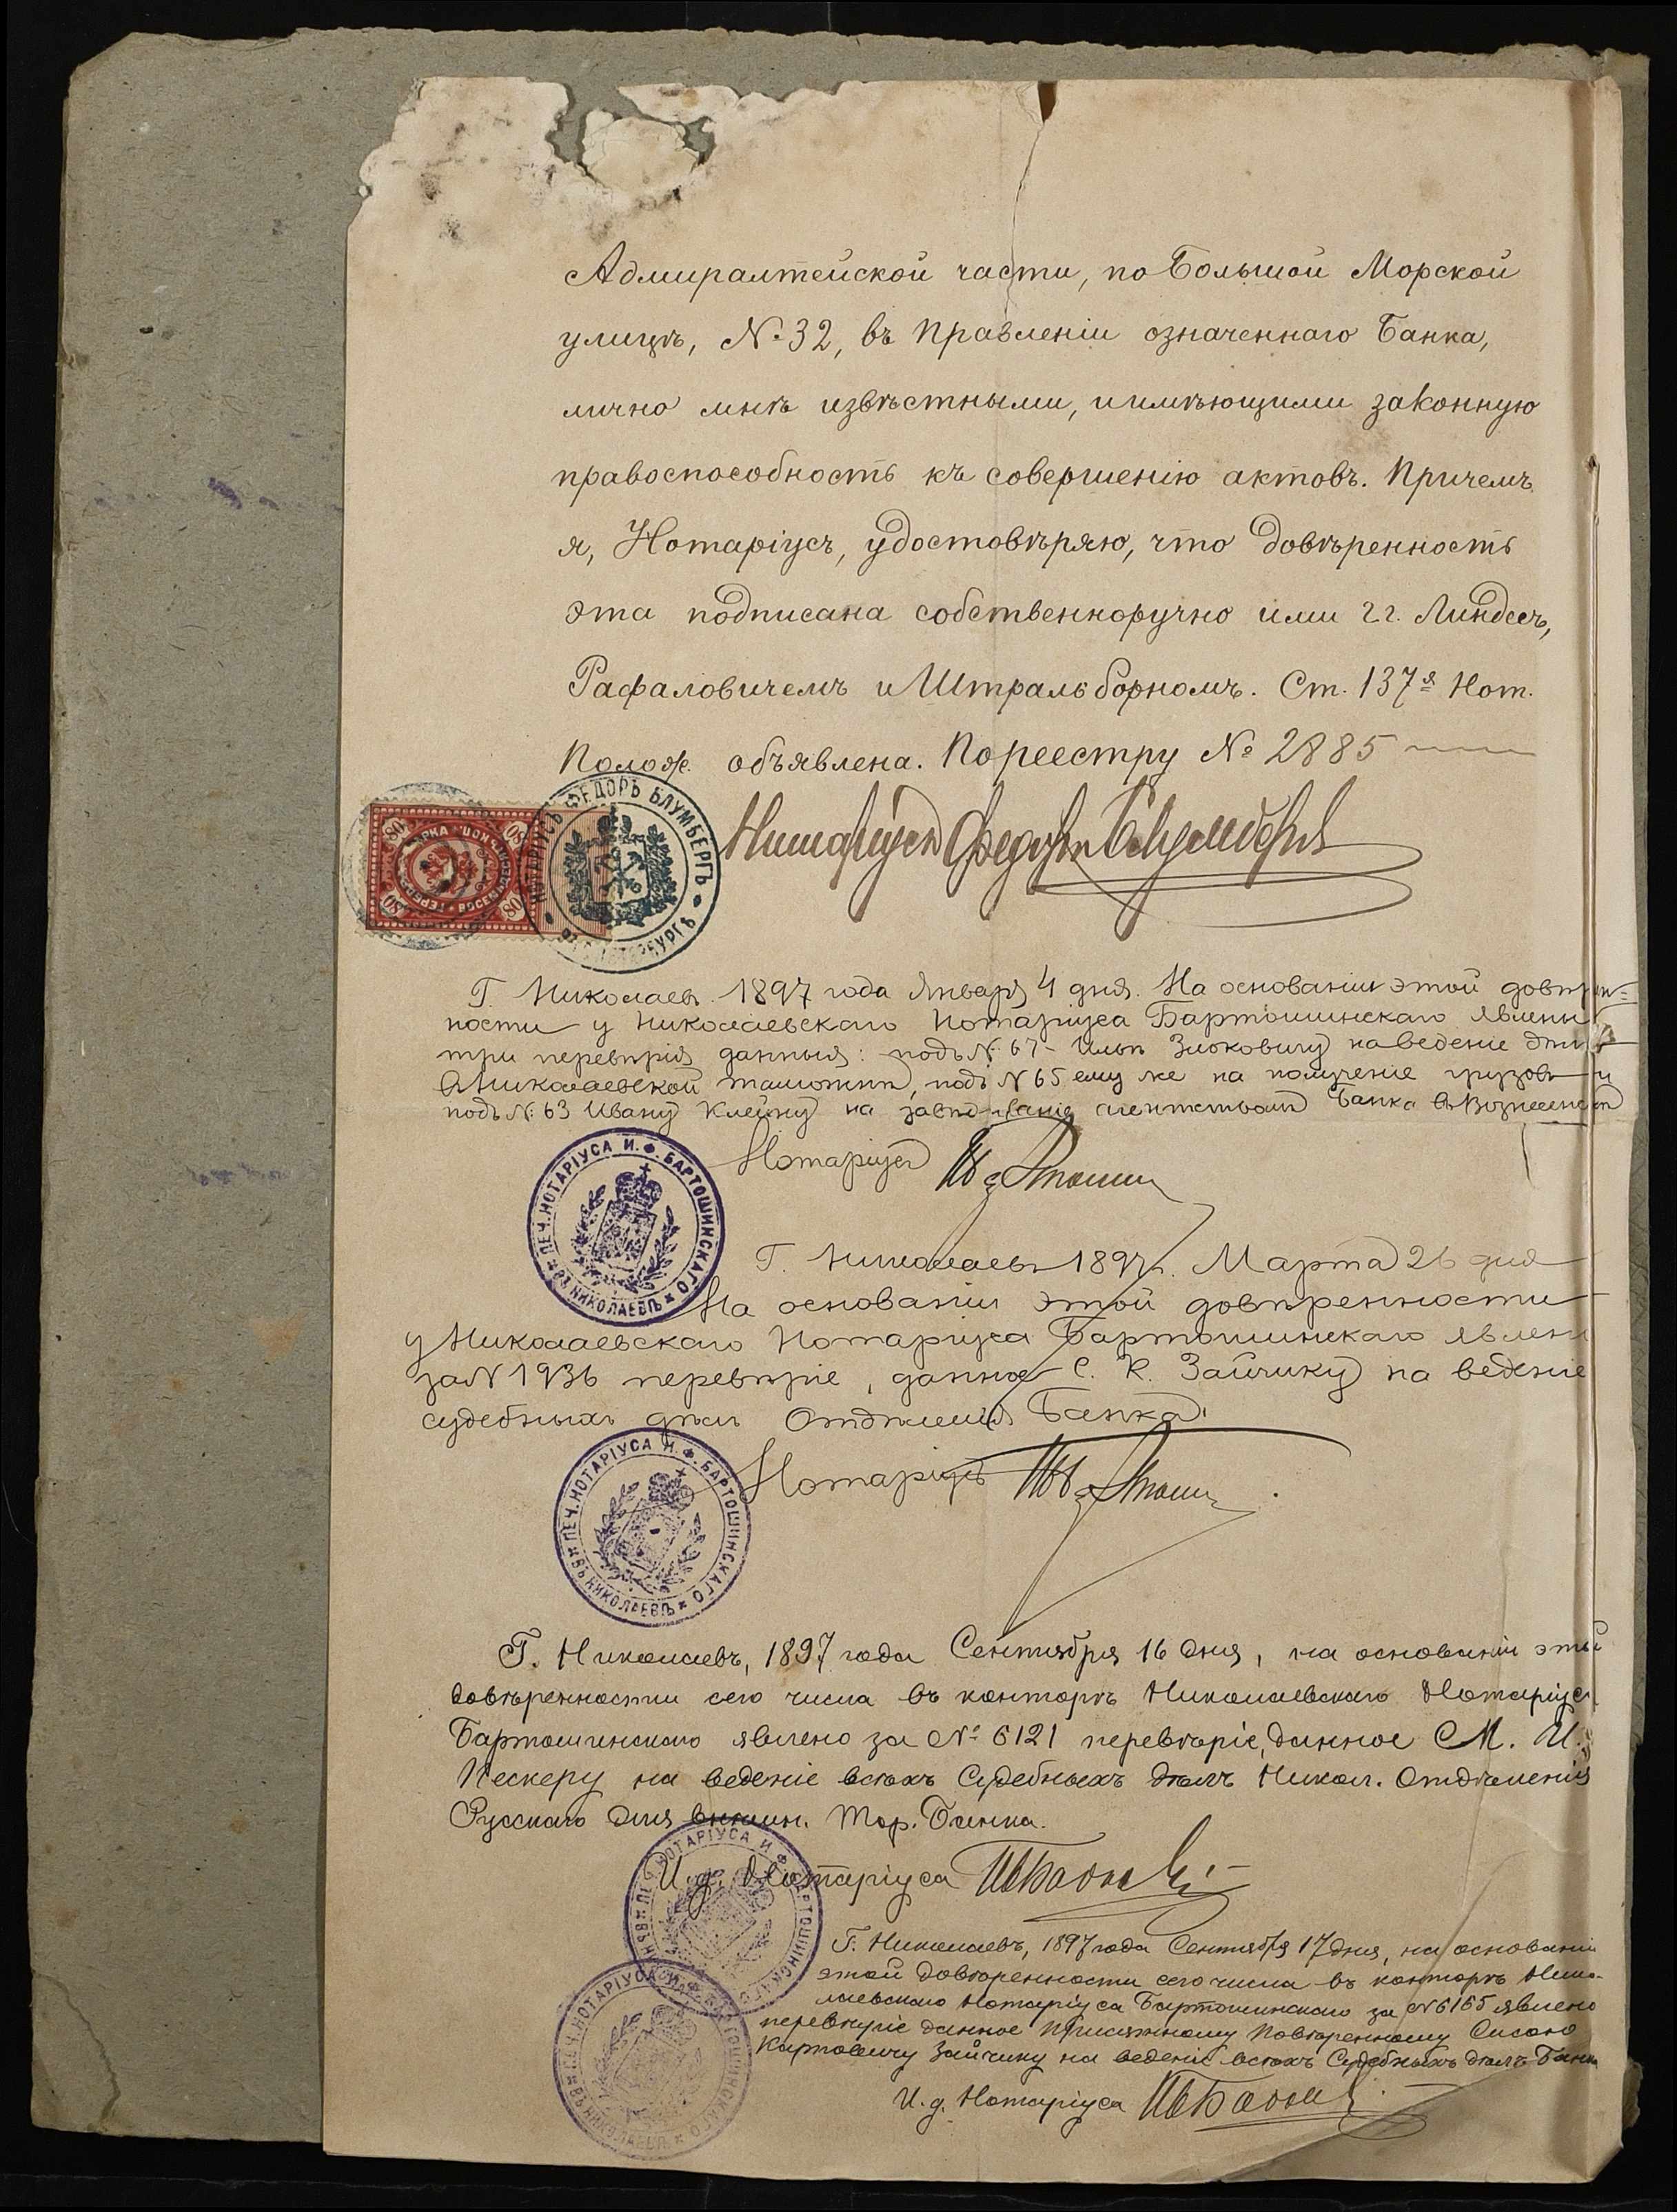 Адмиралтейской части, по Большой Морской
улицѣ, № 32, въ Правленіи означеннаго Банка,
лично мнѣ извѣстными, и имѣющими законную
правоспособность къ совершенію актовъ. Причемъ
я, Нотаріусъ, удостовѣряю, что довѣренность
эта подписана собственноручно ими гг. Линдесъ,
Рафаловичемъ и Штральборномъ. Ст. 137я Нот.
Полож. объявлена. По реестру № 2885
Нотаріусъ Федоръ Блумбергъ
НОТАРІУСЪ ФЕДОРЪ БЛУМБЕРГЪ
80 80 80 80
Г. Николаевъ 1897 года Января 4 дня. На основаніи этой довѣрен-
ности у Николаевскаго Нотаріуса Бартошинскаго явлены
три перевѣрія данныя: подъ № 67 Ильѣ на веденіе дѣлъ
въ Николаевской таможнѣ, подъ № 65 ему же на полученіе грузовъ и
подъ № 63 Ивану Клейну на завѣдываніе агентствомъ Банка въ Вознесенскѣ
Нотаріусъ
ПЕЧ. НОТАРІУСА И. Ф. БАРТОШИНСКАГО ВЪ НИКОЛАЕВѢ
Г. Николаевъ 1897 г. Марта 26 дня
На основаніи этой довѣренности
у Николаевскаго Нотаріуса Бартошинскаго явлено
за № 1936 перевѣріе, данное С. К. Зайчику на веденіе
судебныхъ дѣлъ Отдѣленія Банка.
Нотаріусъ
ПЕЧ. НОТАРІУСА И. Ф. БАРТОШИНСКАГО ВЪ НИКОЛАЕВѢ
Г. Николаевъ, 1897 года Сентября 16 дня, на основаніи этой
довѣренности сего числа въ конторѣ Николаевскаго Нотаріуса
Бартошинскаго явлено за № 6121 перевѣріе, данное М. И.
Пескеру на веденіе всѣхъ Судебныхъ дѣлъ Никол. Отдѣленія
Русскаго для внѣшн. Тор. Банка.
И. д. Нотаріуса
ПЕЧ. НОТАРІУСА И. Ф. БАРТОШИНСКАГО
Г. Николаевъ, 1897 года Сентября 17 дня, на основаніи
этой довѣренности сего числа въ конторѣ Нико-
лаевскаго Нотаріуса Бартошинскаго за № 6165 явлено
перевѣріе данное Присяжному Повѣренному
Карповичу Зайчику на веденіе всѣхъ Судебныхъ дѣлъ Банка
И. д. Нотаріуса
ПЕЧ. НОТАРІУСА И. Ф. БАРТОШИНСКАГО ВЪ НИКОЛАЕВѢ